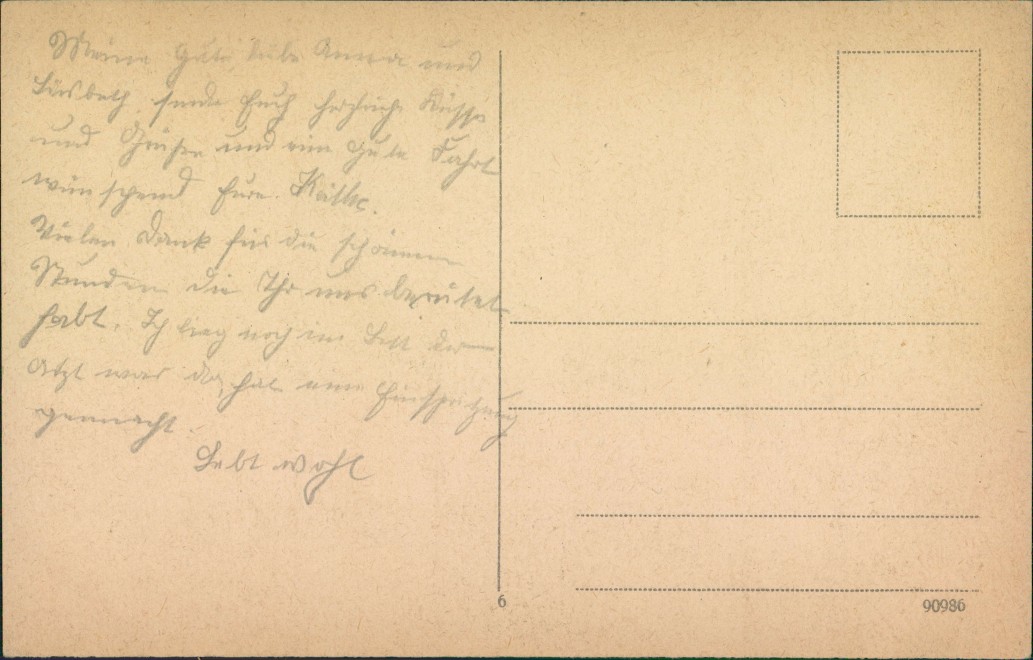 Meine gute liebe Anna und
Liesbeth sende Euch herzliche Küsse
und Grüße und eine gute Fahrt
wünschend Eure Käthe.
Vielen Dank für die schönen
Stunden die Ihr uns bereitet
habt. Ich lieg noch im Bett der
Arzt war da, hat eine Einspritzung
gemacht.
Lebt wohl
6
90986